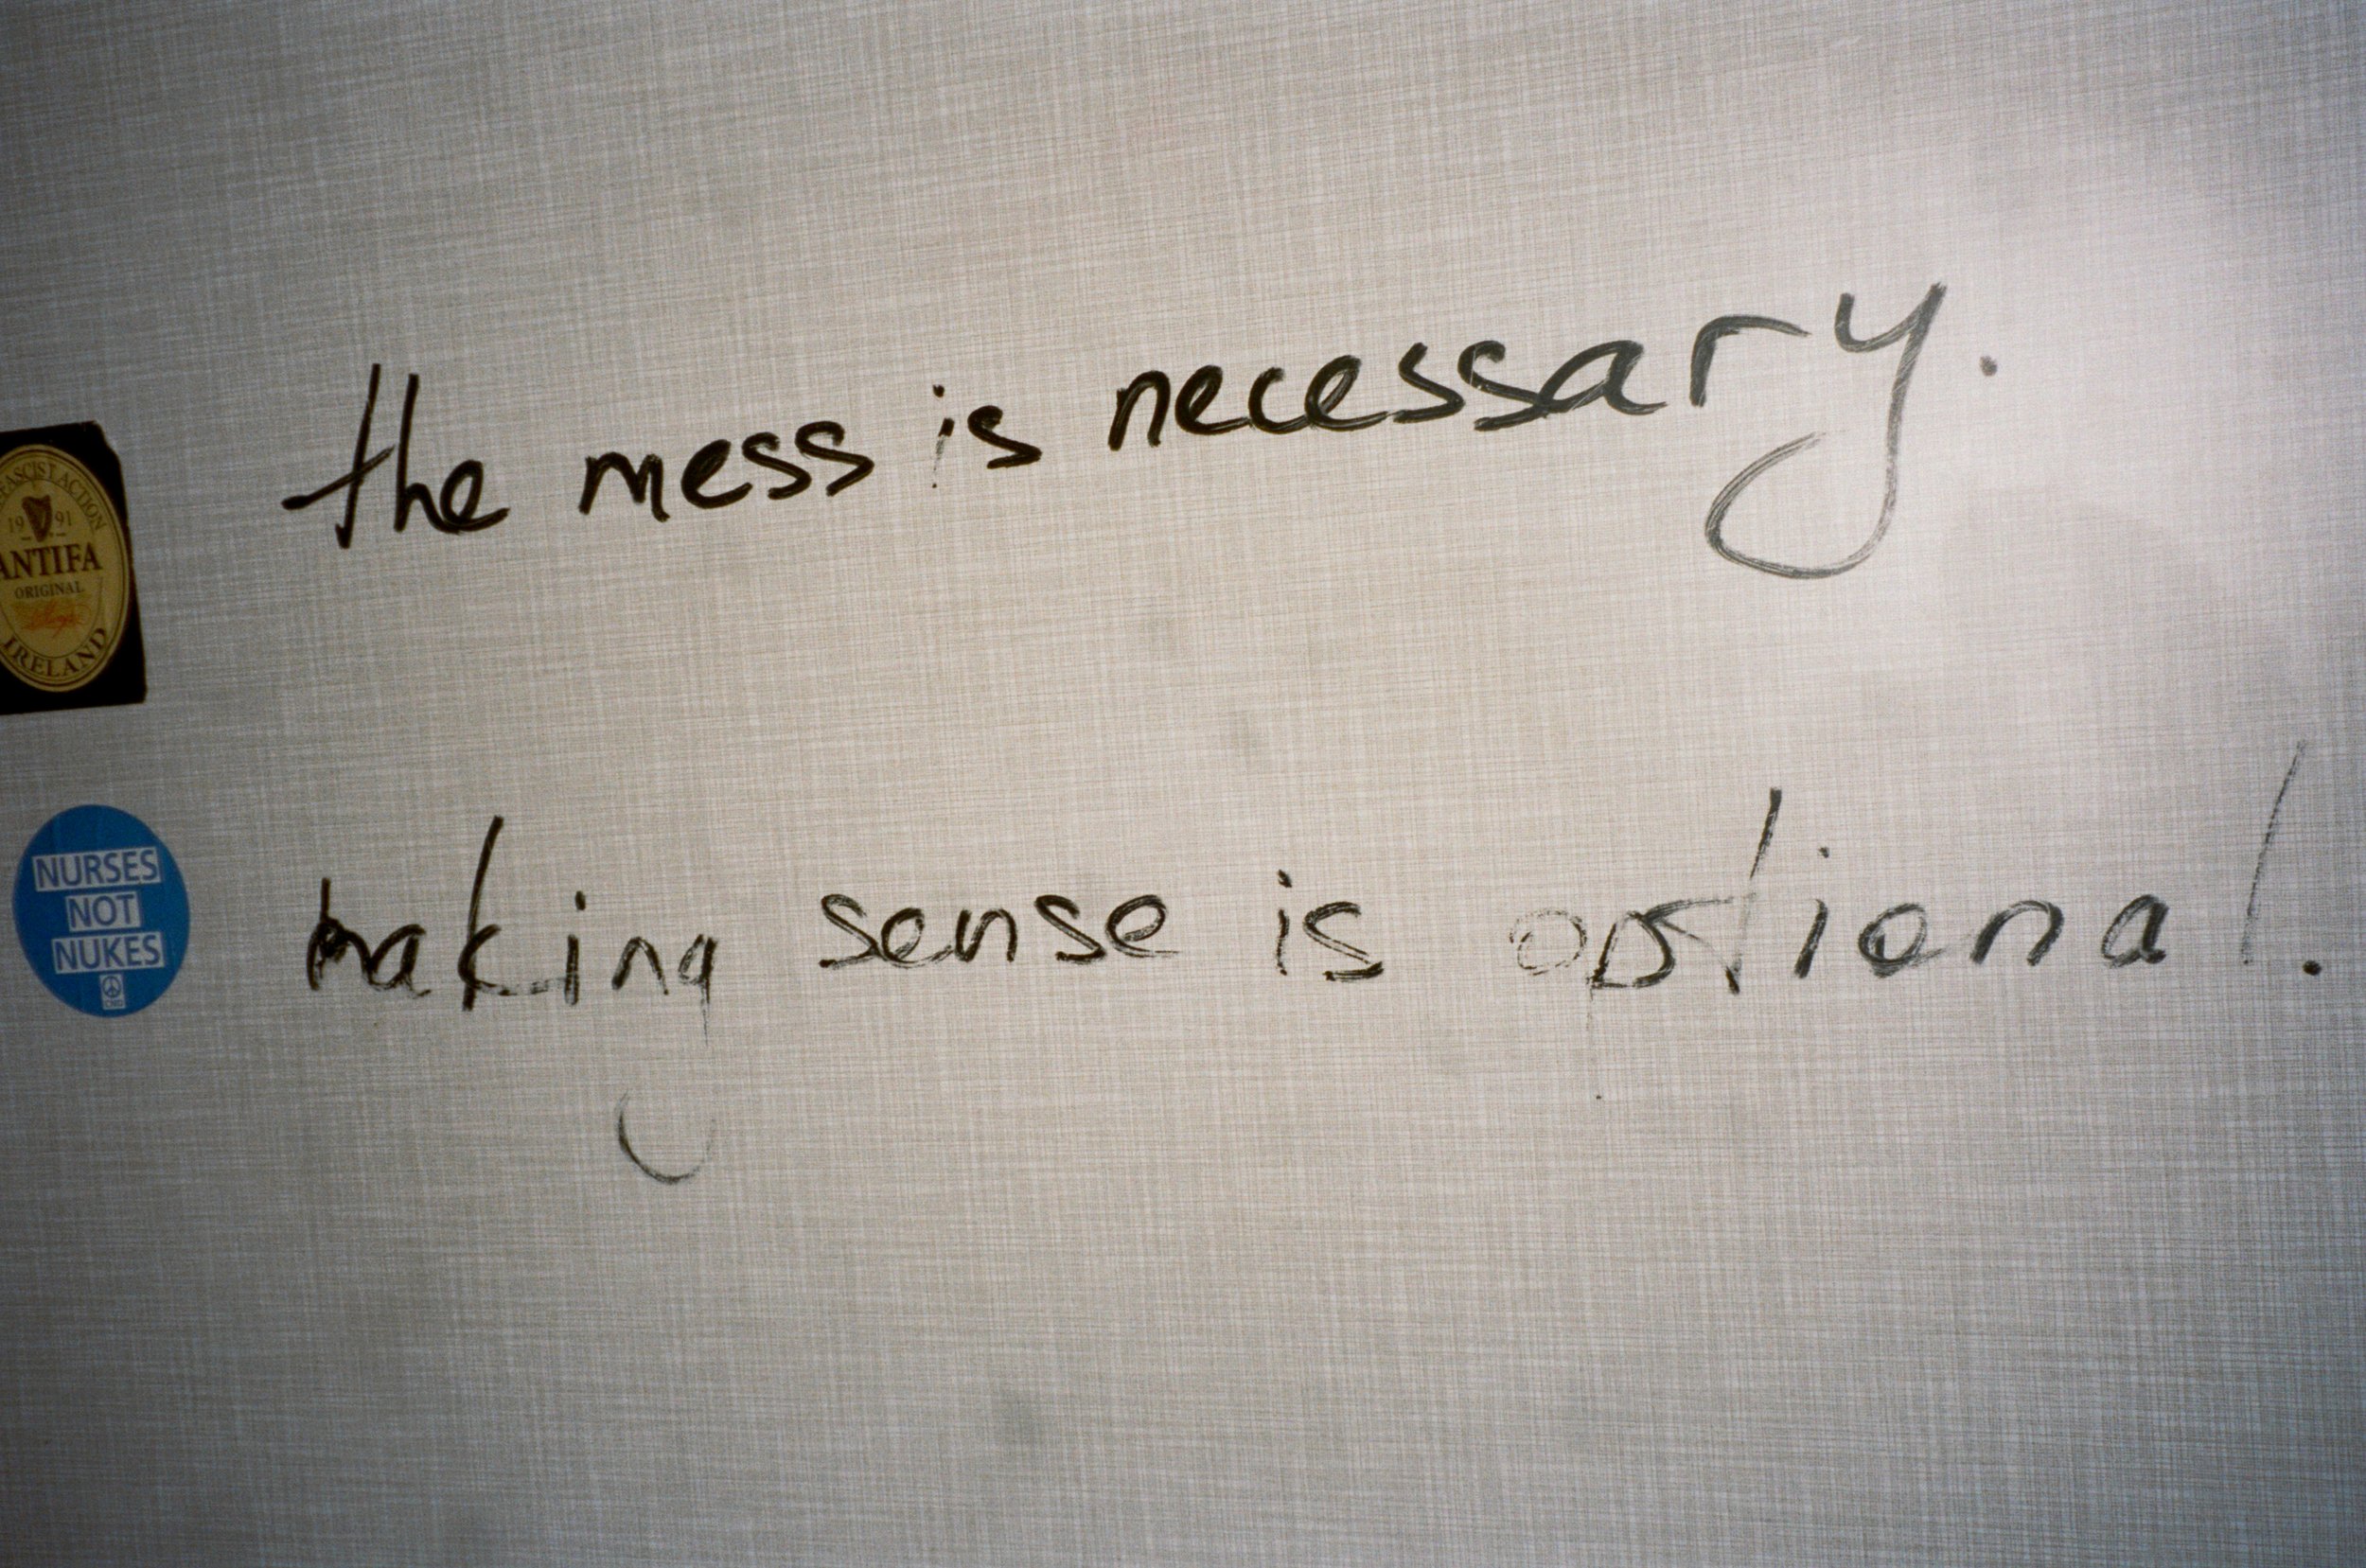 the mess is necessary.
making sense is optional.
FASCIST ACTION
19 91
ANTIFA
ORIGINAL
IRELAND
NURSES
NOT
NUKES
CND